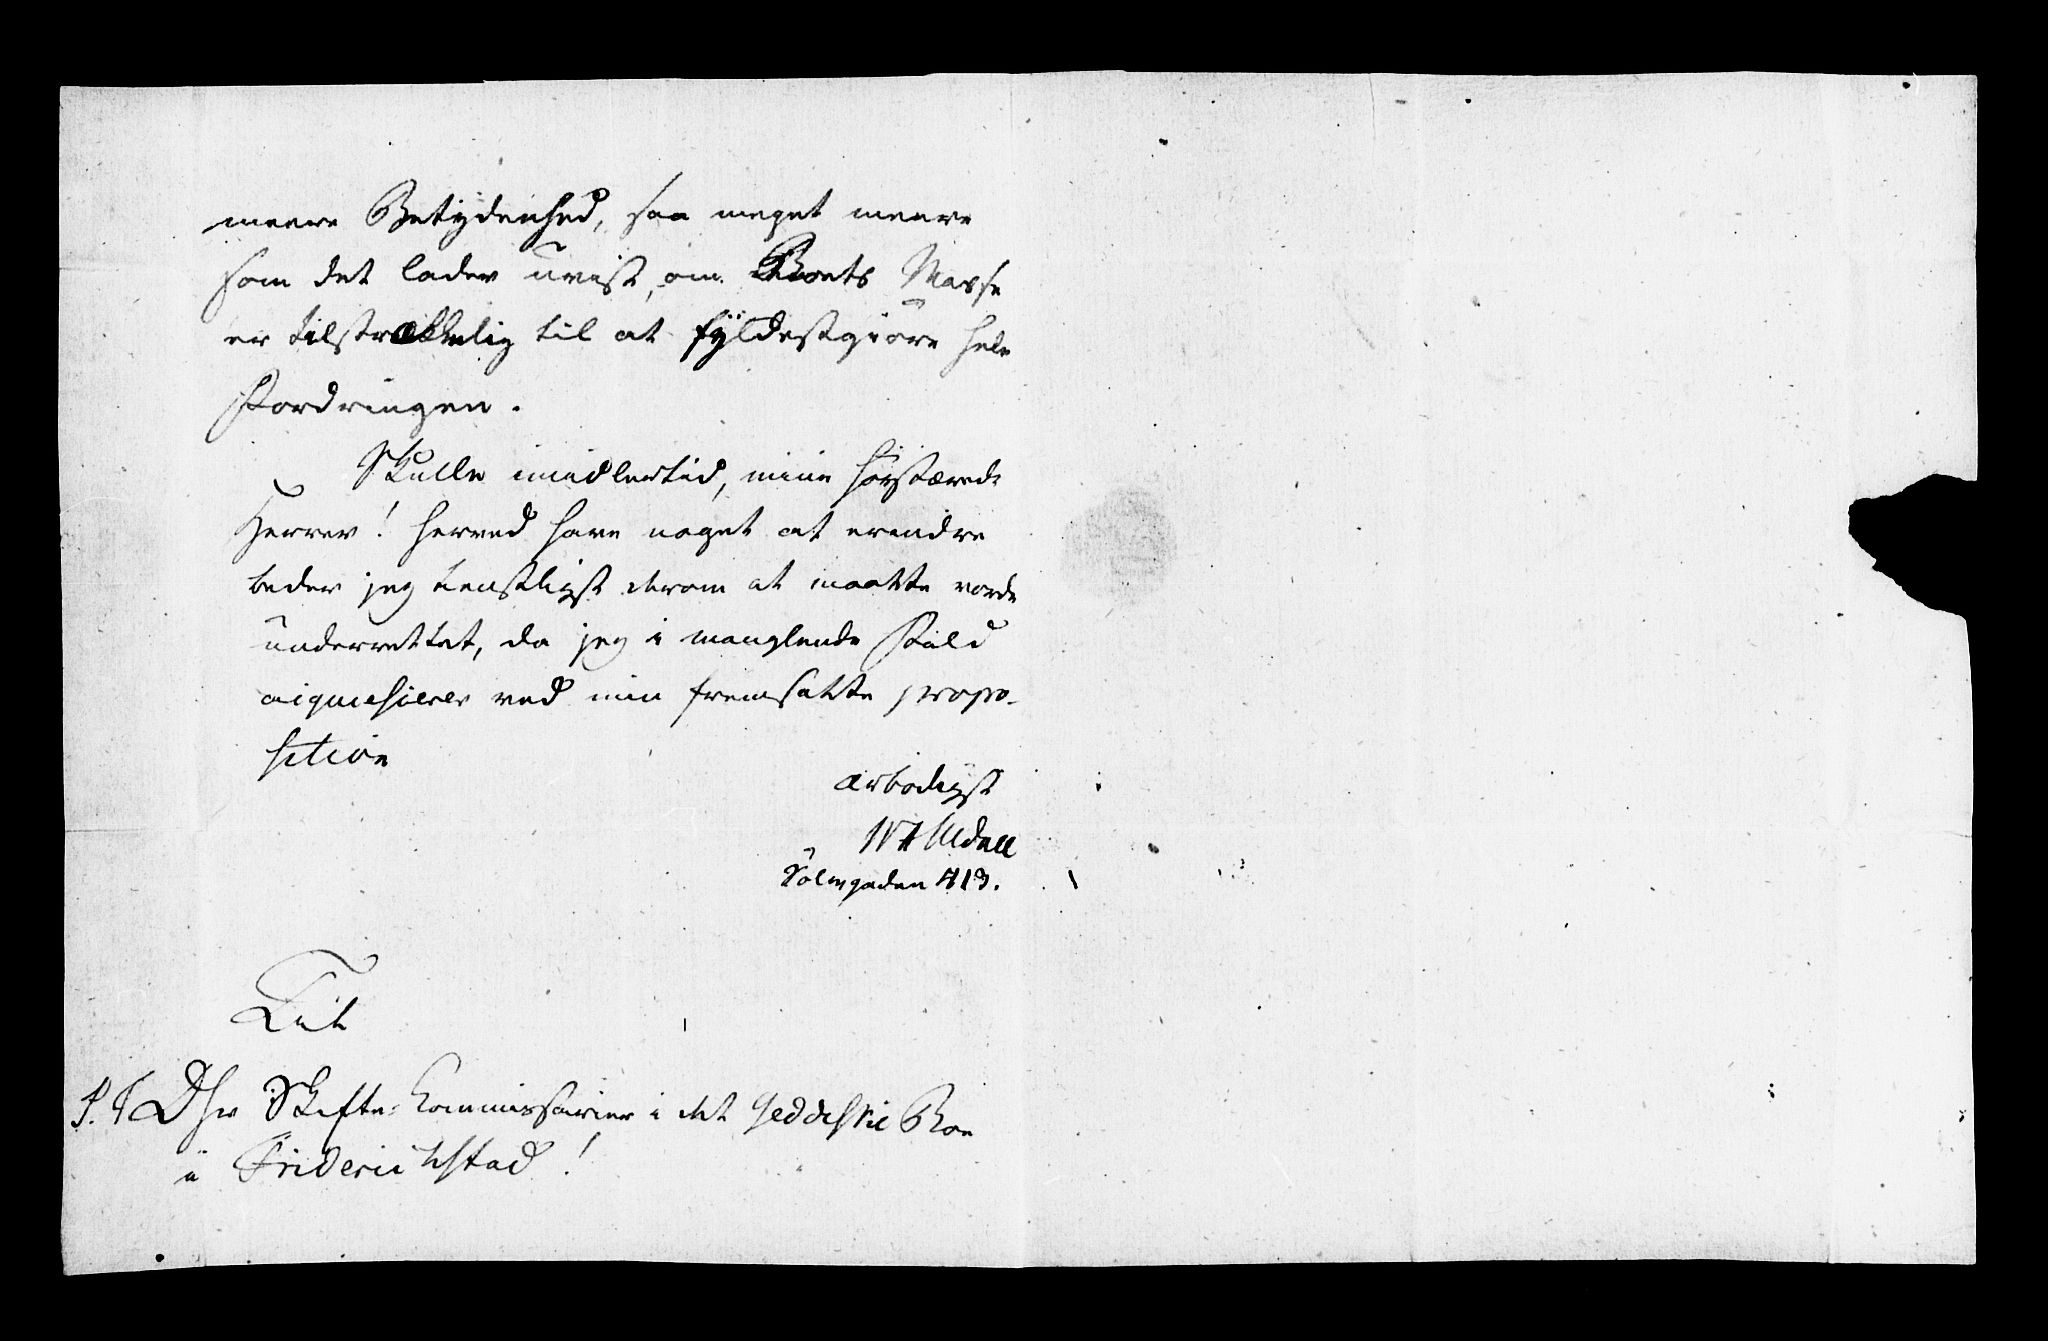 meere Betydenhed, saa meget meere
som det lader uvist, om Boets Masse
er tilstrækkelig til at fyldestgiøre hele
Fordringen.
Skulle imidlertid, mine høystærede
Herrer! herved have noget at erindre
beder jeg tienstligst derom at maatte vorde
underrettet, da jeg i manglende Fald
aiquiesierer ved min fremsatte propo-
sition
ærbødigst
Udall
Sølvgaden 413.
Til
P. T D Hr Skifte-Commissarier i det Geddeske Boe
i Friderichstad!